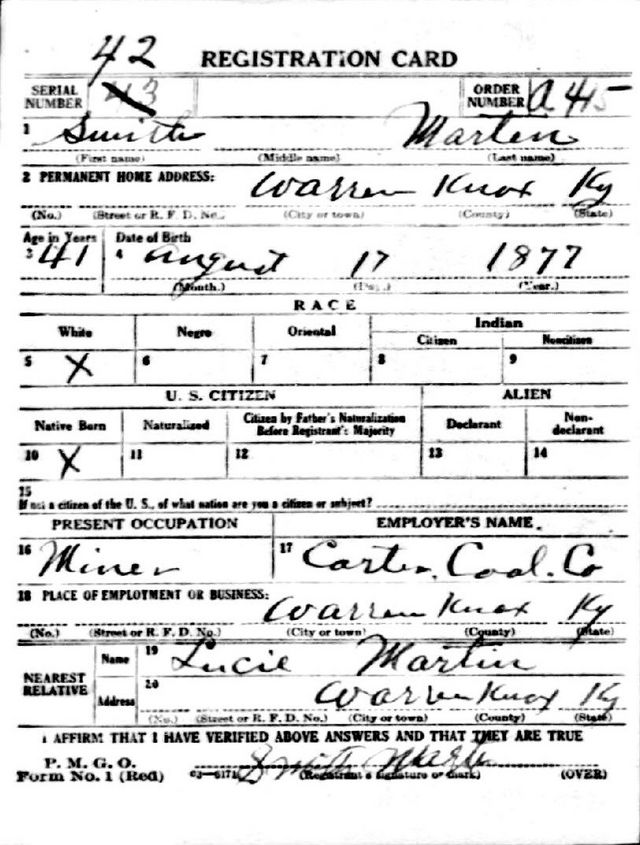 42
REGISTRATION CARD
SERIAL NUMBER 43 ORDER NUMBER A 415
1 Smith Martin
(First name) (Middle name) (Last name)
2 PERMANENT HOME ADDRESS: Warren Knox Ky
(No.) (Street or R. F. D. No.) (City or town) (County) (State)
Age in Years Date of Birth
3 41 4 August 17 1877
(Month.) (Day.) (Year.)
RACE
White Negro Oriental Indian
Citizen Noncitizen
5 X 6 7 8 9
U. S. CITIZEN ALIEN
Native Born Naturalized Citizen by Father's Naturalization Before Registrant's Majority Declarant Non-declarant
10 X 11 12 13 14
15
If not a citizen of the U. S., of what nation are you a citizen or subject?
PRESENT OCCUPATION EMPLOYER'S NAME
16 Miner 17 Carter Coal Co
18 PLACE OF EMPLOYMENT OR BUSINESS: Warren Knox Ky
(No.) (Street or R. F. D. No.) (City or town) (County) (State)
NEAREST RELATIVE Name 19 Lucie Martin
Address 20 Warren Knox Ky
(No.) (Street or R. F. D. No.) (City or town) (County) (State)
I AFFIRM THAT I HAVE VERIFIED ABOVE ANSWERS AND THAT THEY ARE TRUE
P. M. G. O.
Form No. 1 (Red) 03—6171 Smith Martin (Registrant's signature or mark) (OVER)